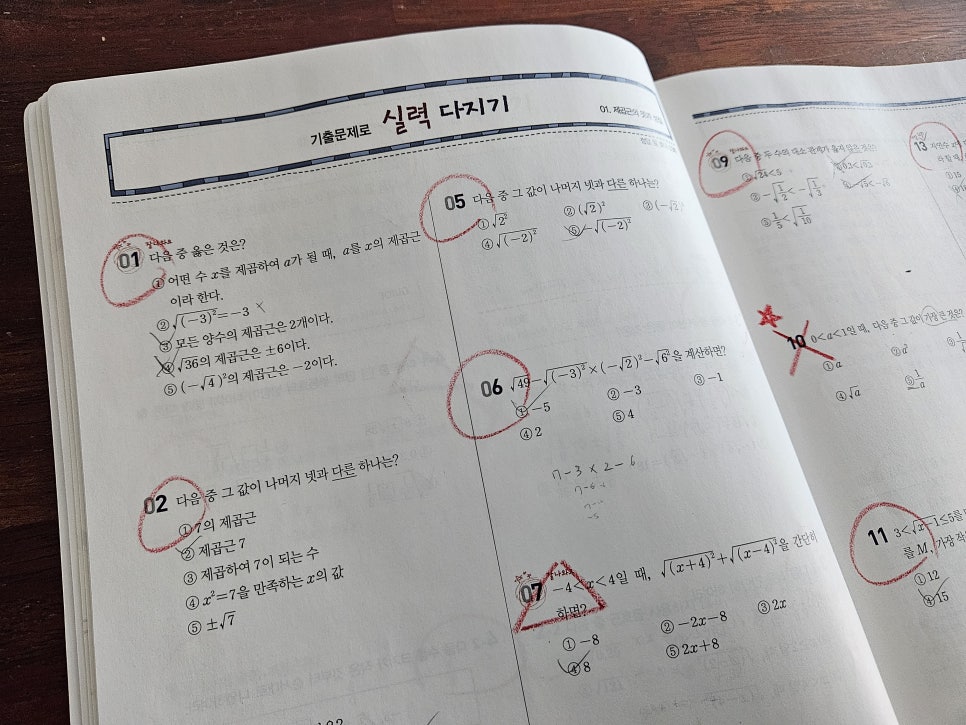 기출문제로 실력 다지기
01. 제곱근의
01 다음 중 옳은 것은?
① 어떤 수 x를 제곱하여 a가 될 때, a를 x의 제곱근
이라 한다.
② √(-3)²=-3 ×
③ 모든 양수의 제곱근은 2개이다.
④ √36의 제곱근은 ±6이다.
⑤ (-√4)²의 제곱근은 -2이다.
02 다음 중 그 값이 나머지 넷과 다른 하나는?
① 7의 제곱근
② 제곱근 7
③ 제곱하여 7이 되는 수
④ x²=7을 만족하는 x의 값
⑤ ±√7
05 다음 중 그 값이 나머지 넷과 다른 하나는?
① √2² ② (√2)² ③ (-√2)
④ √(-2)² ⑤ -√(-2)²
06 √49-√(-3)²×(-√2)²-√6²을 계산하면?
① -5 ② -3 ③ -1
④ 2 ⑤ 4
7-3×2-6
7-6
-5
07 -4<x<4일 때, √(x+4)²+√(x-4)²을 간단히
하면?
① -8 ② -2x-8 ③ 2x
④ 8 ⑤ 2x+8
09 다음 중 두 수의 대소 관계가 옳지 않은 것은?
① √24<5
③ -√1/2<-√1/3
⑤ 1/5<√1/10
10 0<a<1일 때, 다음 중 그 값이 가장 큰 것은?
① a ② a²
④ √a ⑤ 1/a
11 3<√x-1≤5를
를 M, 가장 작
① 12
④ 15
13 자연수